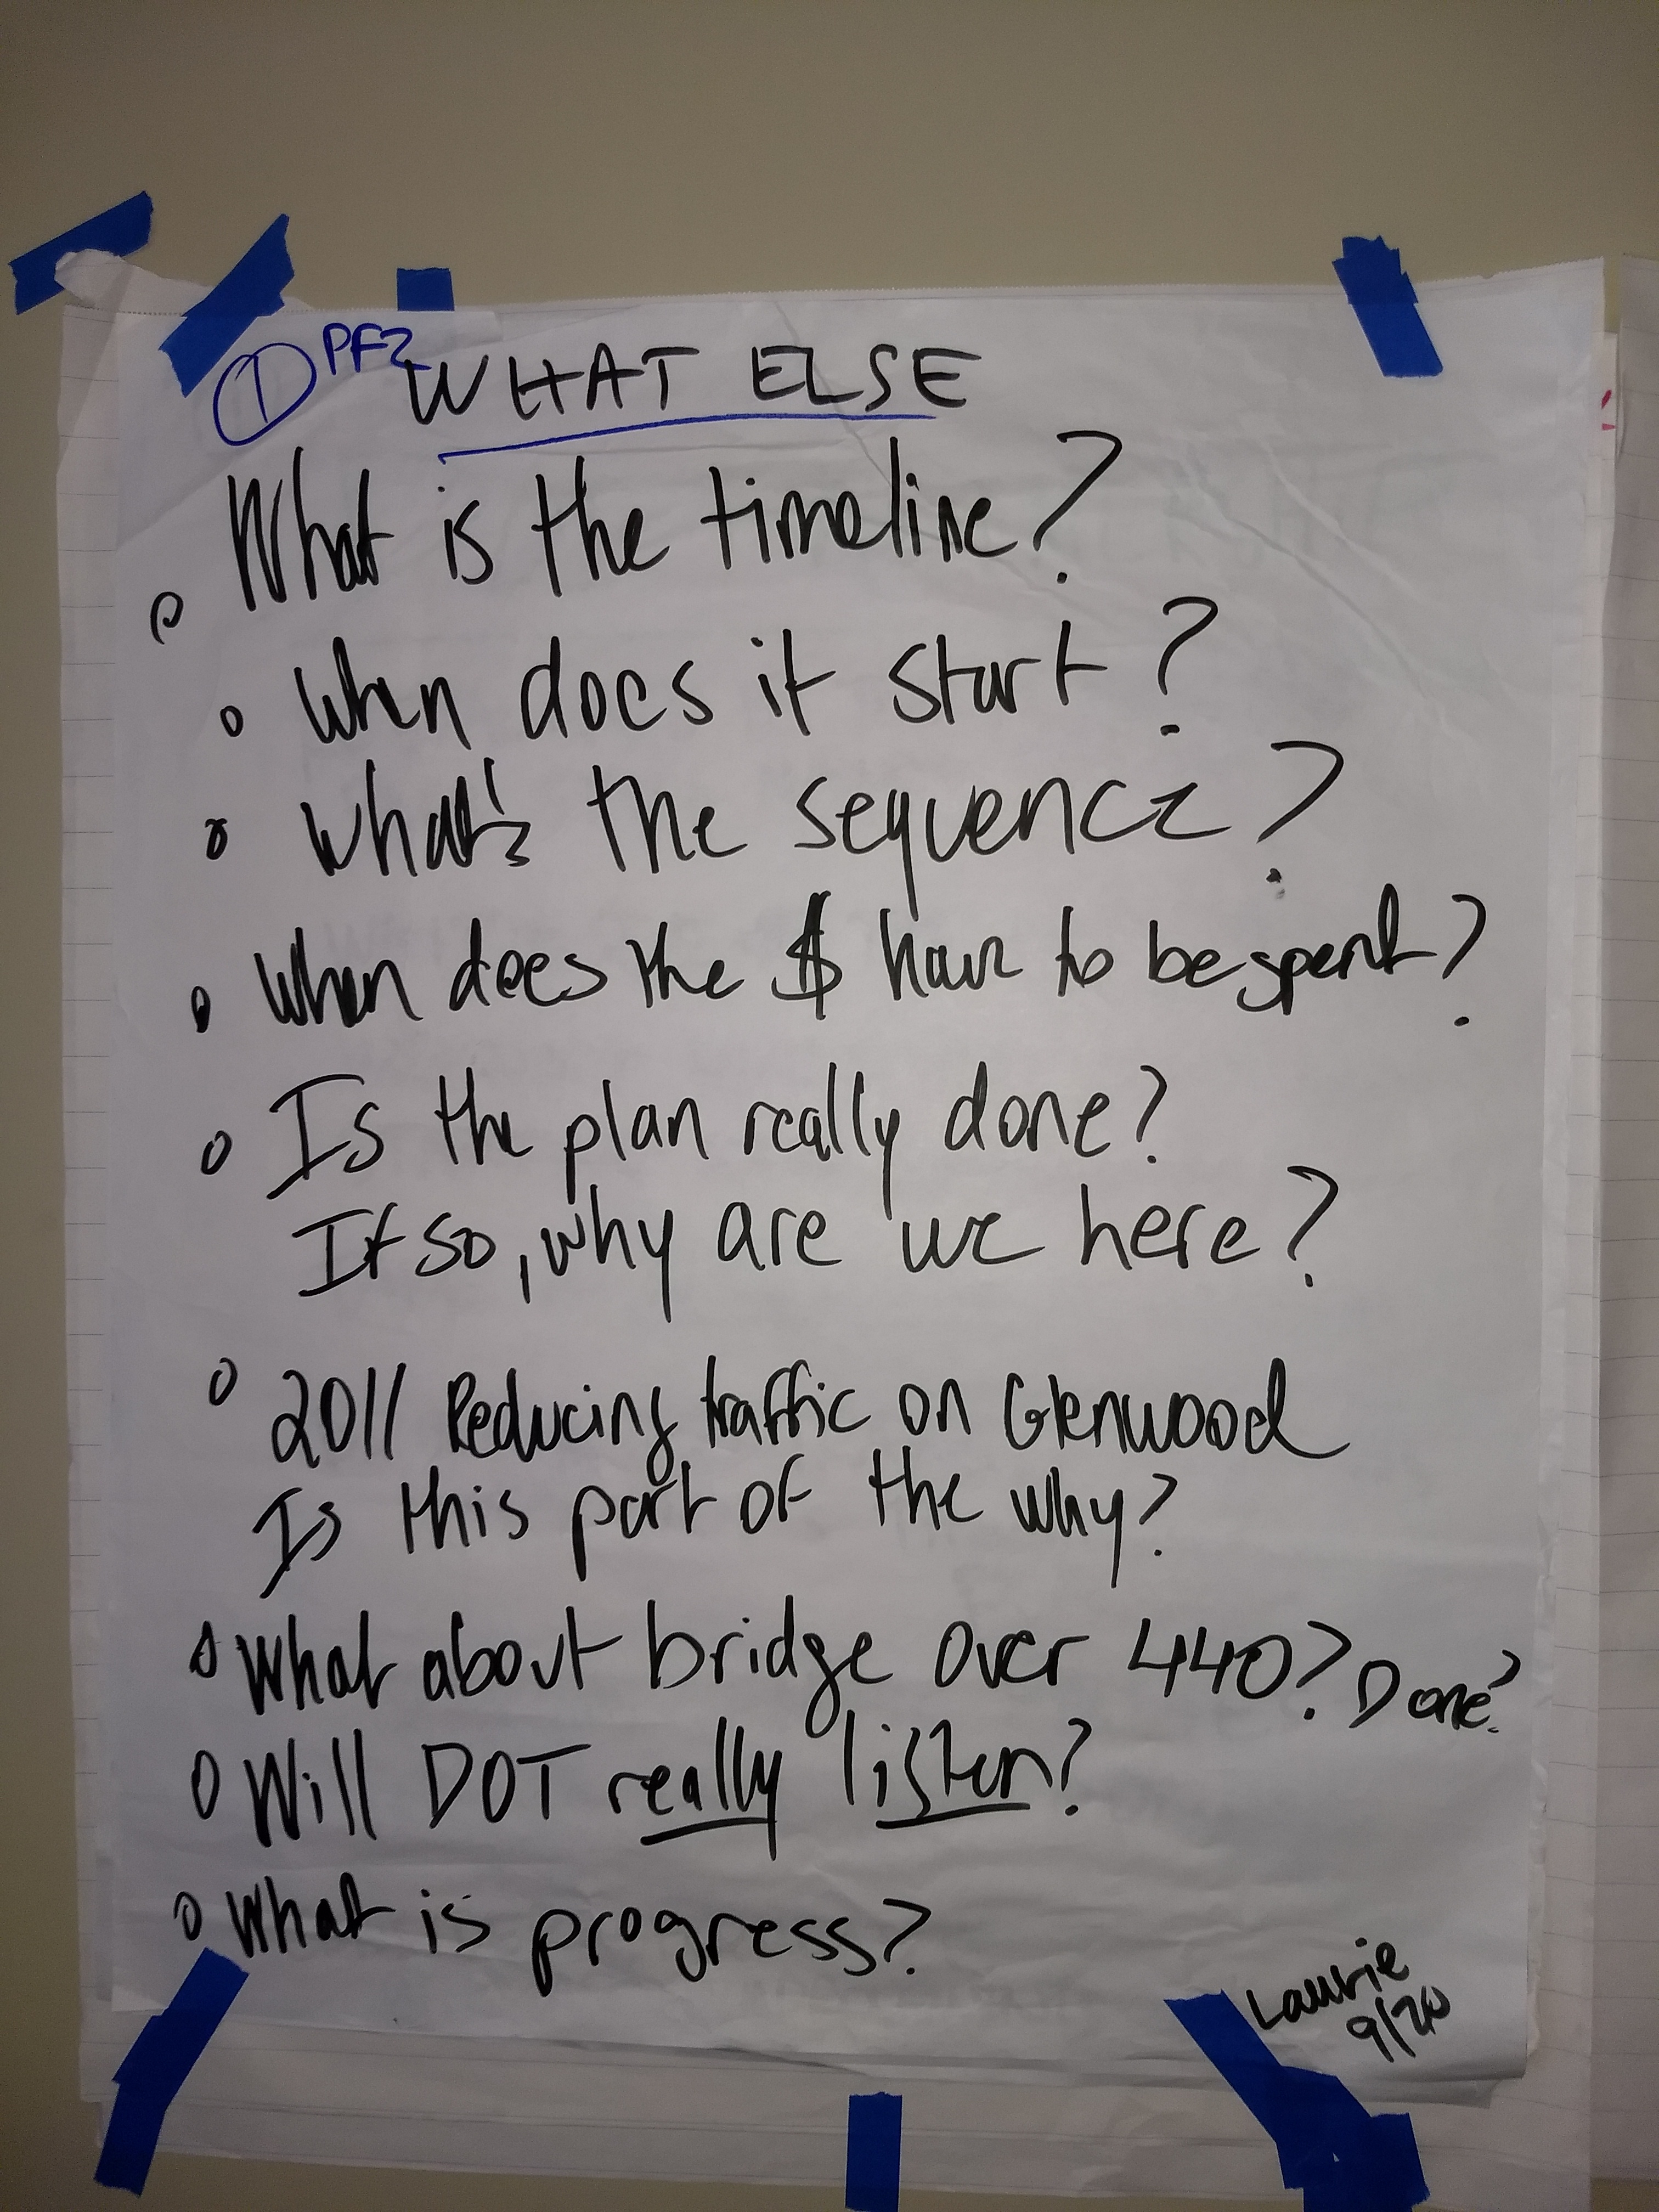 ① PF2
WHAT ELSE
What is the timeline?
When does it start?
What's the sequence?
When does the $ have to be spent?
Is the plan really done?
If so, why are we here?
2011 Reducing traffic on Glenwood
Is this part of the why?
What about bridge over 440? Done?
Will DOT really listen?
What is progress?
Laurie
9/20